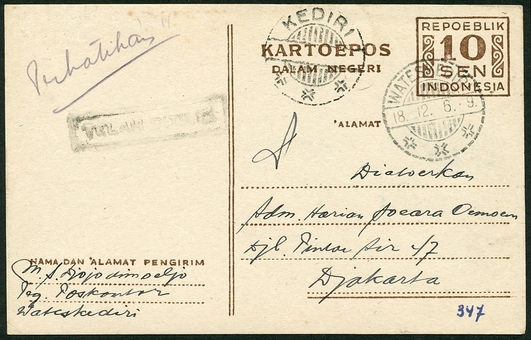 Perhatikan
KEDIRI
KARTOEPOS
DALAM NEGERI
REPOEBLIK
10
SEN
INDONESIA
WATES
18.12.6.-9.
'ALAMAT
Diatoerkan
Adm. Harian Soeara Oemoem
Djl. Pintoe Air 5/7
Djakarta
NAMA DAN ALAMAT PENGIRIM
M. S. Djojodimoeljo
Peg. Poskantor
Wateskediri
347